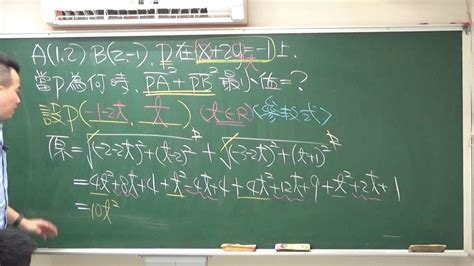 A(1,2) B(2,-1), P在 x+2y=-1 上.
當P為何時, PA²+PB² 最小值=?
設P(-1-2t, t) (t∈R)<參數式>
原=√(-2-2t)²+(t-2)² ² + √(-3-2t)²+(t+1)² ²
=4t²+8t+4+t²-4t+4+4t²+12t+9+t²+2t+1
=10t²